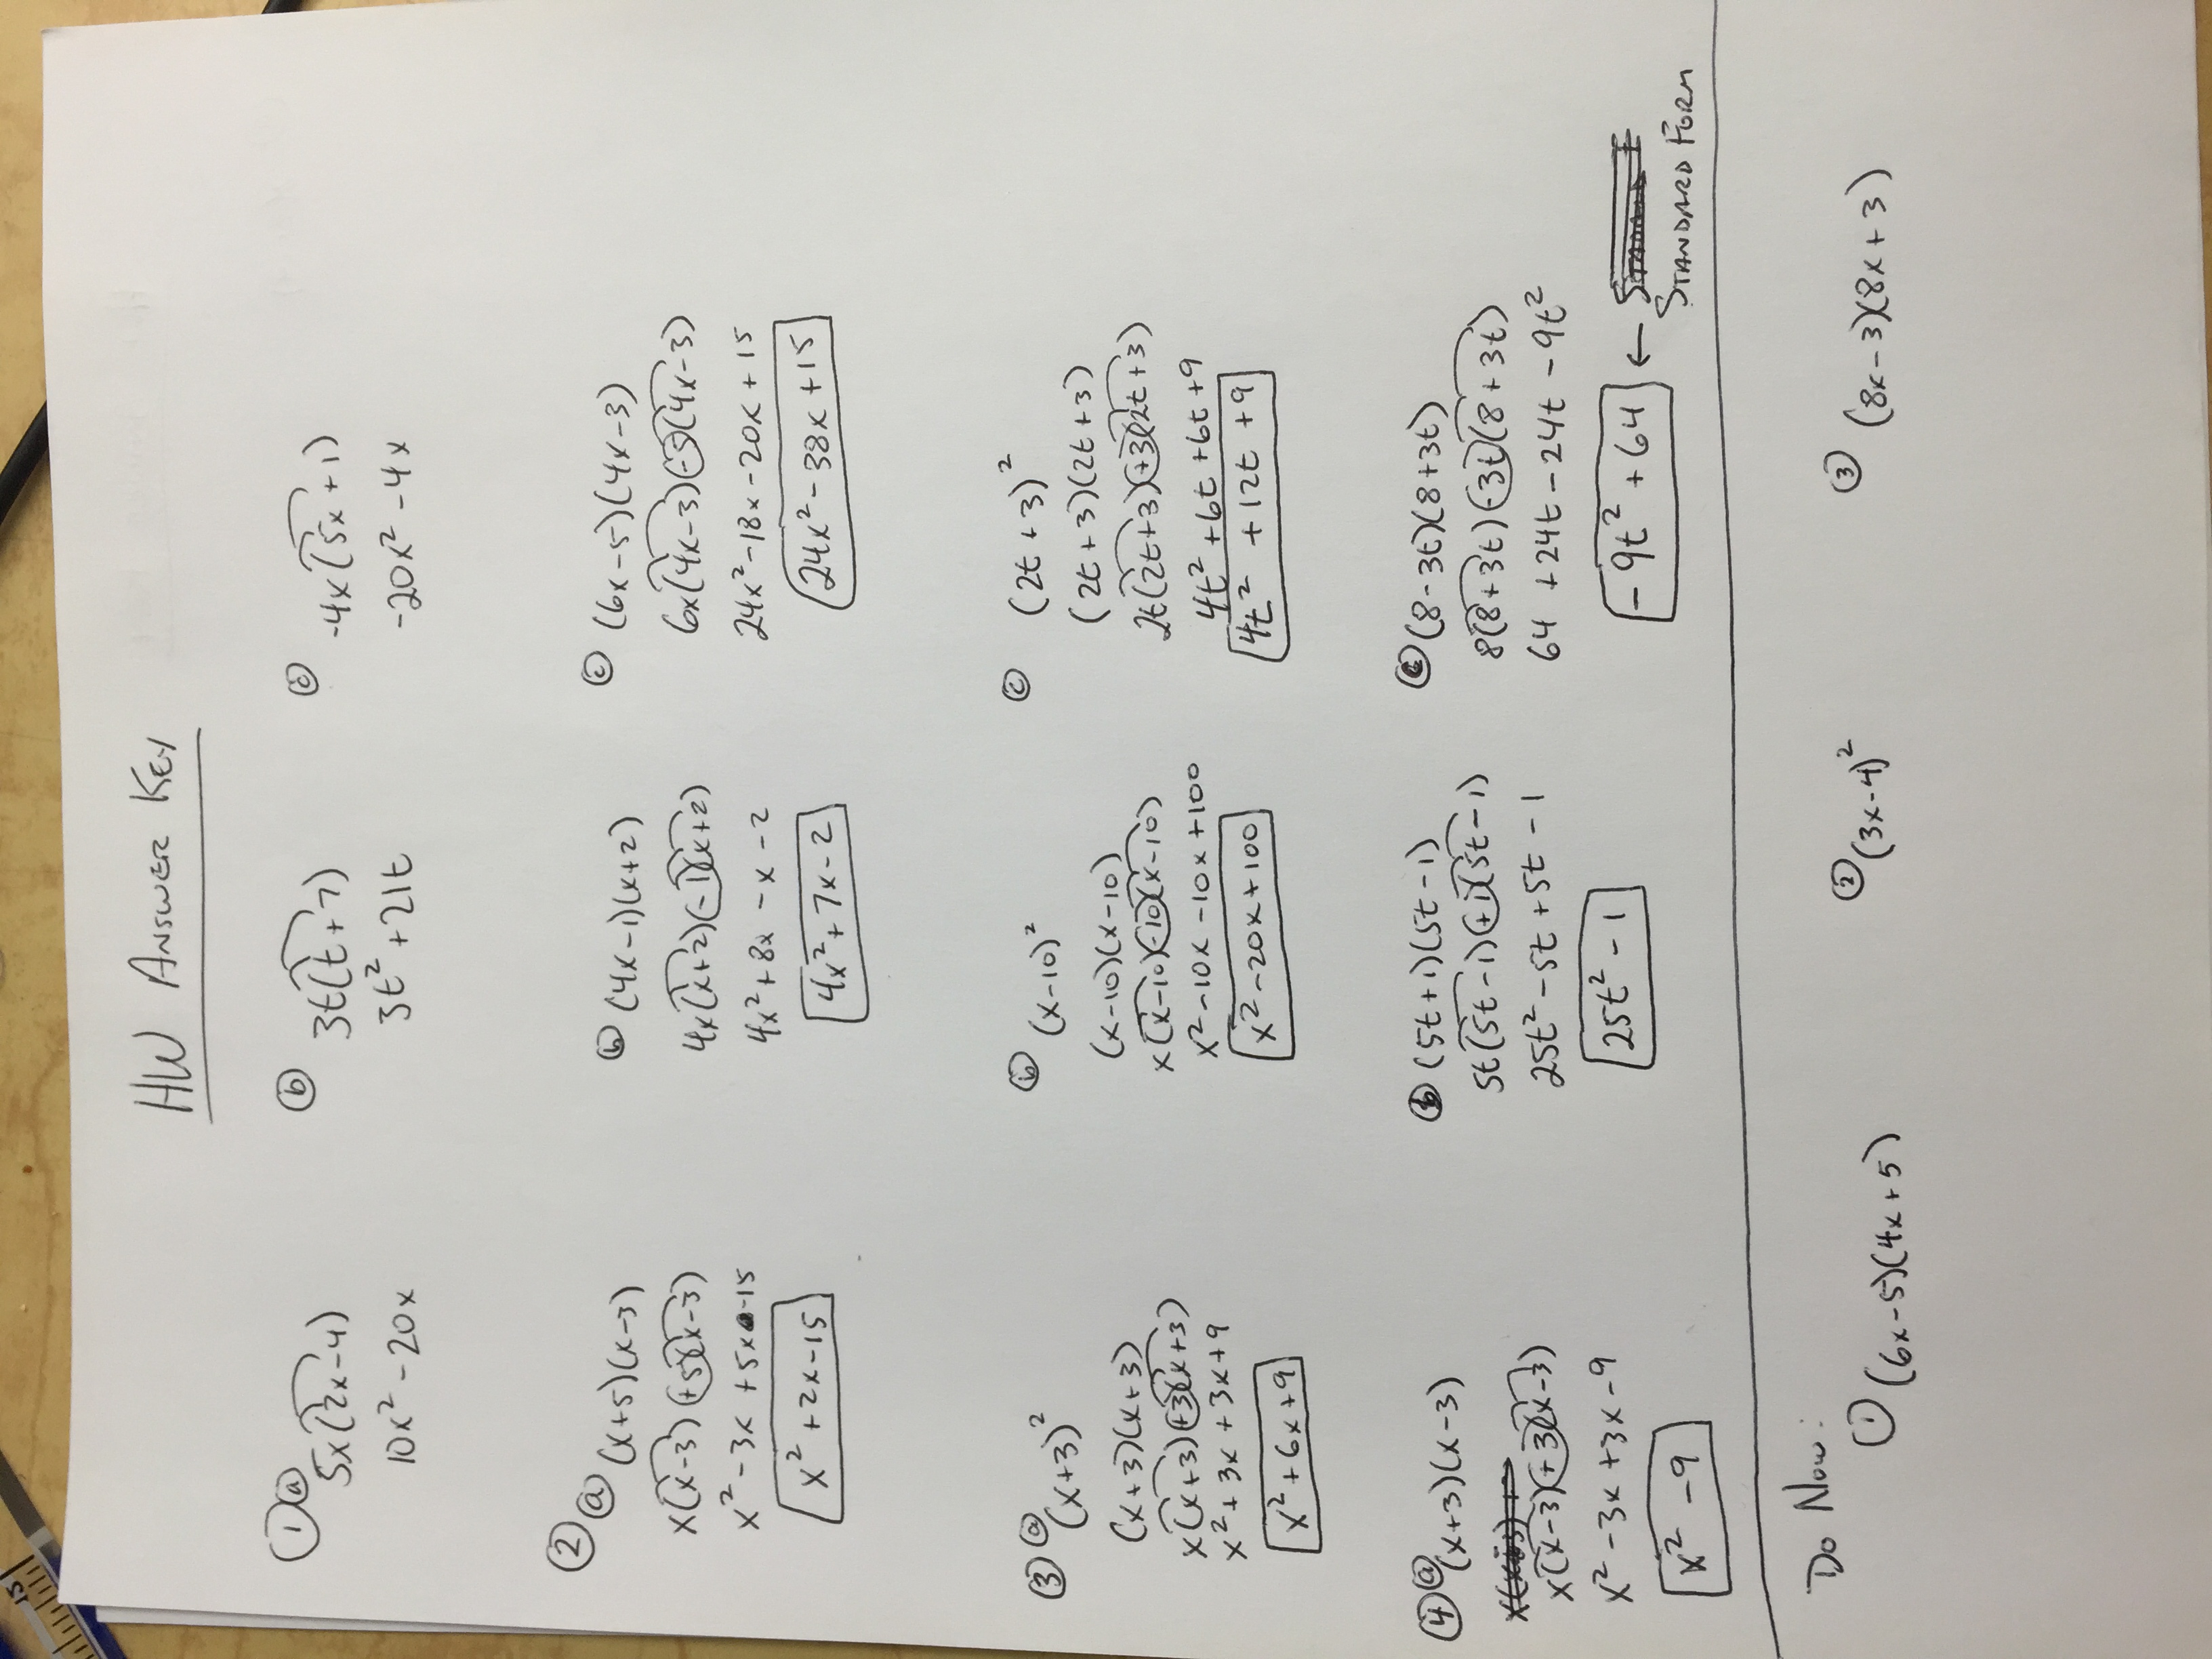 HW ANSWER KEY
① ⓐ 5x(2x-4)
10x² - 20x
ⓑ 3t(t+7)
3t² + 21t
ⓒ -4x(5x+1)
-20x² - 4x
② ⓐ (x+5)(x-3)
x(x-3)(+5)(x-3)
x² - 3x + 5x - 15
x² + 2x - 15
ⓑ (4x-1)(x+2)
4x(x+2)(-1)(x+2)
4x² + 8x - x - 2
4x² + 7x - 2
ⓒ (6x-5)(4x-3)
6x(4x-3)(-5)(4x-3)
24x² - 18x - 20x + 15
24x² - 38x + 15
③ ⓐ (x+3)²
(x+3)(x+3)
x(x+3)(+3)(x+3)
x² + 3x + 3x + 9
x² + 6x + 9
ⓑ (x-10)²
(x-10)(x-10)
x(x-10)(-10)(x-10)
x² - 10x - 10x + 100
x² - 20x + 100
ⓒ (2t+3)²
(2t+3)(2t+3)
2t(2t+3)(+3)(2t+3)
4t² + 6t + 6t + 9
4t² + 12t + 9
④ ⓐ (x+3)(x-3)
x(x-3)(+3)(x-3)
x² - 3x + 3x - 9
x² - 9
ⓑ (5t+1)(5t-1)
5t(5t-1)(+1)(5t-1)
25t² - 5t + 5t - 1
25t² - 1
ⓒ (8-3t)(8+3t)
8(8+3t)(-3t)(8+3t)
64 + 24t - 24t - 9t²
-9t² + 64 ←
STANDARD FORM
Do Now:
① (6x-5)(4x+5)
② (3x-4)²
③ (8x-3)(8x+3)
15